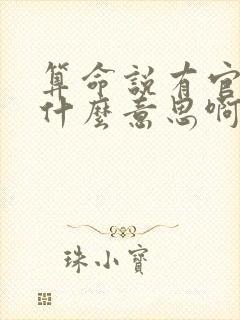 算命説有官
什麼意思啊
珠小寶